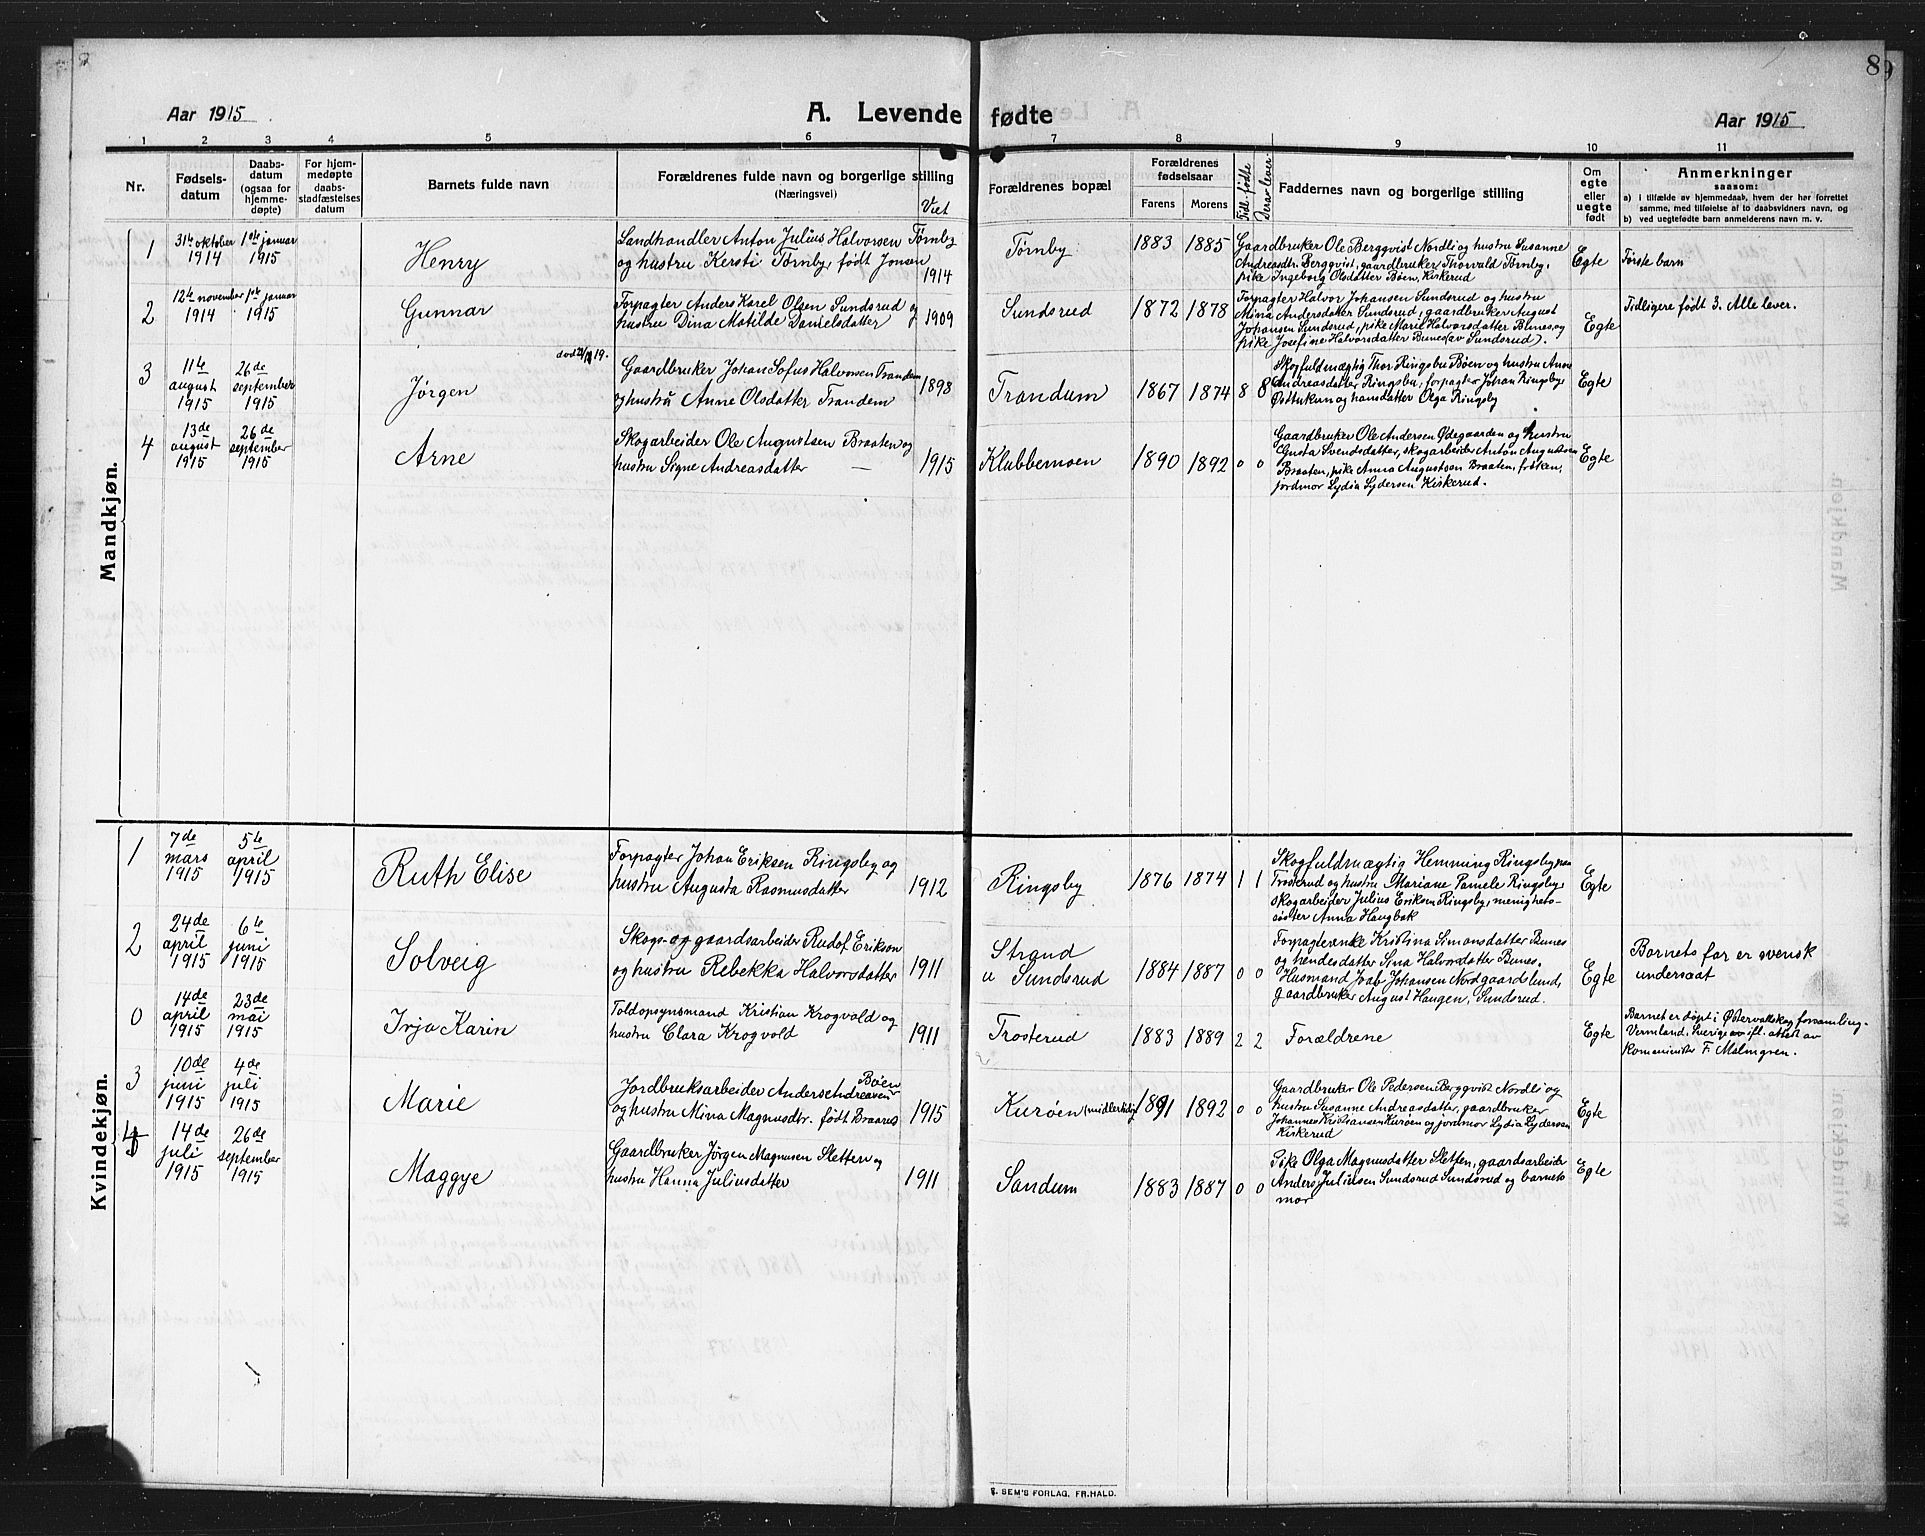 8
Aar 1915
A. Levende fødte
Aar 1915
1 2 3 4 5 6 7 8 9 10 11
Nr.
Fødsels-
datum
Daabs-
datum
(ogsaa for
hjemme-
døpte)
For hjem-
medøpte
daabs-
stadfæstelses
datum
Barnets fulde navn
Forældrenes fulde navn og borgerlige stilling
(Næringsvei)
Viet
Forældrenes bopæl
Forældrenes
fødselsaar
Farens
Morens
Tidl. fødte
Derav lever
Faddernes navn og borgerlige stilling
Om
egte
eller
uegte
født
Anmerkninger
saasom:
a) i tilfælde av hjemmedaab, hvem der har forrettet
samme, med tilføielse af to daabsvidners navn, og
b) ved uegtefødte barn anmelderens navn m. v.
Mandkjøn.
1
31te oktober
1914
1ste januar
1915
Henry
Landhandler Anton Julius Halvorsen Tørnby
og hustru Kersti Tørnby, født Jonsen
1914
Tørnby
1883 1885
Gaardbruker Ole Bergqvist Nordli og hustru Susanne
Andreasdtr. Bergqvist, gaardbruker Thorvald Tørnby,
pike Ingeborg Olsdatter Bøen, Kirkerud
Egte
Første barn
2
12te november
1914
1ste januar
1915
Gunnar
Forpagter Anders Karel Olsen Sundsrud og
hustru Dina Matilde Danielsdatter
1909
Sundsrud
1872 1878
Forpagter Halvor Johansen Sundsrud og hustru
Mina Andersdatter Sundsrud, gaardbruker August
Johansen Sundsrud, pike Marie Halvorsdatter Bunes, og
pike Josefine Halvorsdatter Bunes (av Sundsrud).
Egte
Tidligere født 3. Alle lever.
3
11te
august
1915
26de
september
1915
Jørgen
Gaardbruker Johan Sofus Halvorsen Trandem
og hustru Anne Olsdatter Trandem
1898
Trandum
1867 1874 8 8
Skogfuldmægtig Thor Ringsbu Bøen og hustru Anna
Andreasdatter Ringsbu, forpagter Johan Ringsby
og hans datter Olga Ringsby
Egte
4
13de
august
1915
26de
september
1915
Arne
Skogarbeider Ole Augustsen Braaten og
hustru Signe Andreasdatter —
1915
Klubbemoen
1890 1892 0 0
Gaardbruker Ole Andersen Ødegaarden og hustru
Gusta Svendsdatter, skogarbeider Anton Augustsen
Braaten, pike Anna Augustsen Braaten, frøken,
jordmor Lydia Lydersen Kirkerud.
Egte
Kvindekjøn.
1
7de
mars
1915
5te
april
1915
Ruth Elise
Forpagter Johan Eriksen Ringsby og
hustru Augusta Rasmusdatter
1912
Ringsby
1876 1874 1 1
Skogfuldmægtig Hemming Ringsby
Trosterud og hustru Mariane Pamele Ringsby,
skogarbeider Julius Eriksen Ringsby, menighets-
søster Anna Haugbak
Egte
2
24de
april
1915
6te
juni
1915
Solveig
Skogs- og gaardsarbeider Rudof Erikson
og hustru Rebekka Halvorsdatter
1911
Strand
u Sundsrud
1884 1887 0 0
Forpagterenke Kristina Simonsdatter Bunes
og hendes datter Sina Halvorsdatter Bunes.
Husmand Joab Johansen Nordgaardlund,
gaardbruker August Haugen, Sundsrud.
Egte
Barnets far er svensk
undersaat
0
14de
april
1915
23de
mai
1915
Irja Karin
Toldopsynsmand Kristian Krogvold og
hustru Clara Krogvold
1911
Trosterud
1883 1889 2 2
Forældrene
Egte
Barnet er døpt i Østervallskog forsamling,
Vermland, Sverige ifl. attest av
Komminister F. Malmgren.
3
10de
juni
1915
4de
juli
1915
Marie
Jordbruksarbeider Anders Andreasen Bøen
og hustru Mina Magnusdtr. født Braarud
1915
Kurøen (midlertidig)
1891 1892 0 0
Gaardbruker Ole Pedersen Bergqvist Nordli og
hustru Susanne Andreasdatter, gaardbruker
Johannes Kristiansen Kurøen og jordmor Lydia Lydersen
Kirkerud
Egte
4
14de
juli
1915
26de
september
1915
Maggye
Gaardbruker Jørgen Magnusen Sletten og
hustru Hanna Juliusdatter
1911
Sandum
1883 1887 0 0
Pike Olga Magnusdatter Sletten, gaardsarbeider
Anders Juliusen Sundsrud Sundsrud og barnets
mor
Egte
SEM'S FORLAG, FR.HALD.